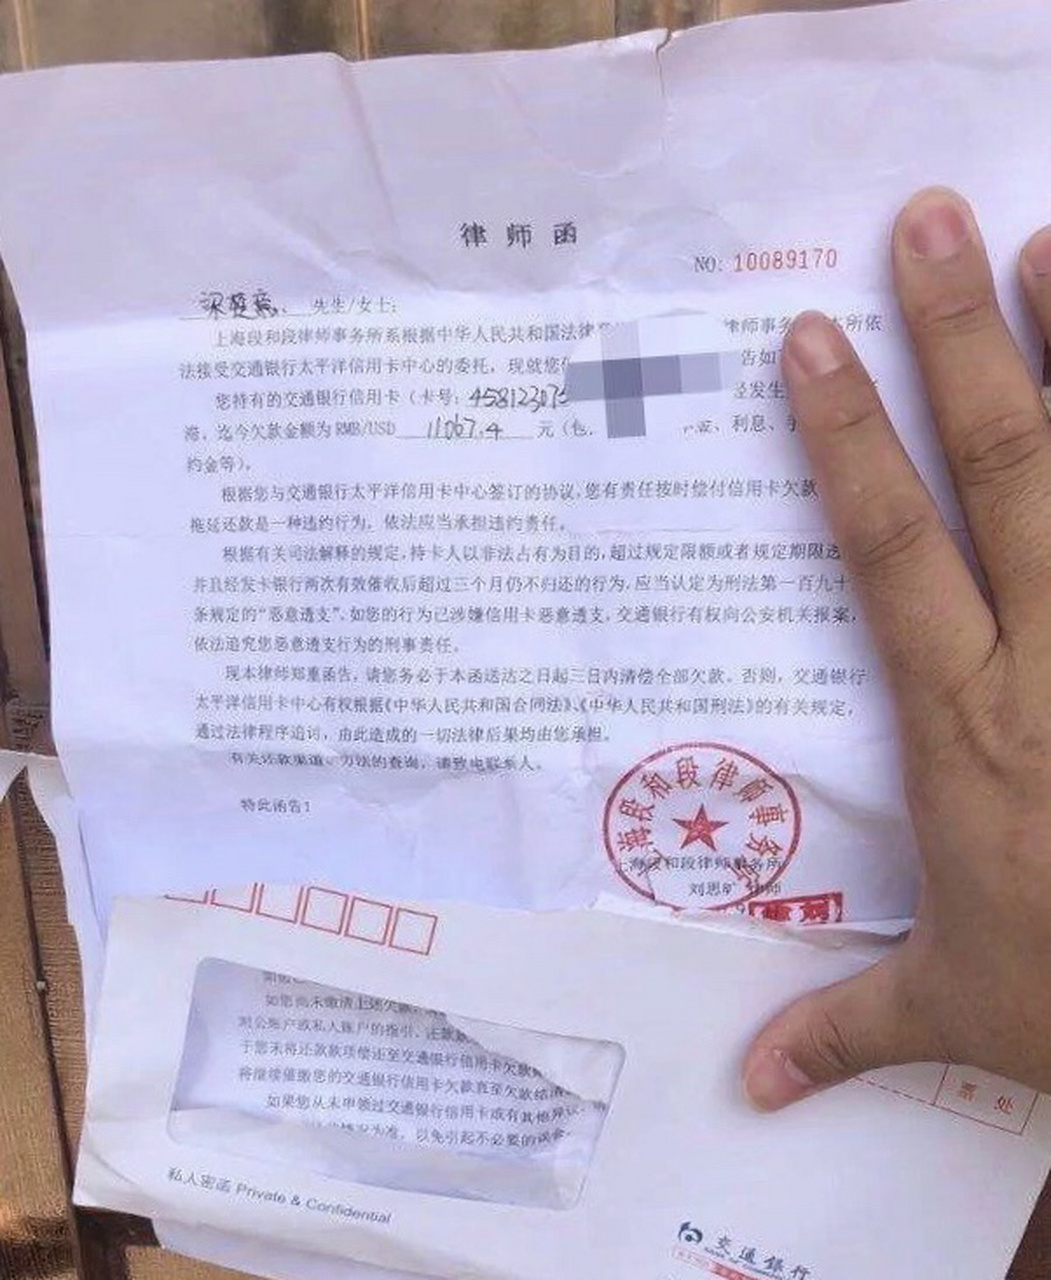 律师函
NO: 10089170
先生/女士:
上海段和段律师事务所系根据中华人民共和国法律 律师事务 所依
法接受交通银行太平洋信用卡中心的委托，现就您 告如
您持有的交通银行信用卡（卡号: 45812307 经发生
迄今欠款金额为RMB/USD 11067.4 元（包 利息、手
约金等）。
根据您与交通银行太平洋信用卡中心签订的协议，您有责任按时偿付信用卡欠款
拖延还款是一种违约行为，依法应当承担违约责任。
根据有关司法解释的规定，持卡人以非法占有为目的，超过规定限额或者规定期限透
并且经发卡银行两次有效催收后超过三个月仍不归还的行为，应当认定为刑法第一百九十
条规定的“恶意透支”。如您的行为已涉嫌信用卡恶意透支，交通银行有权向公安机关报案，
依法追究您恶意透支行为的刑事责任。
现本律师郑重函告，请您务必于本函送达之日起三日内清偿全部欠款。否则，交通银行
太平洋信用卡中心有权根据《中华人民共和国合同法》、《中华人民共和国刑法》的有关规定，
通过法律程序追讨，由此造成的一切法律后果均由您承担。
有关还款渠道、方法的查询，请致电联系人。
特此函告！
上海段和段律师事务所
上海段和段律师事务所
律师
如您尚未缴清上述欠款，
对公账户或私人账户的指引，还款
于您未将还款款项偿还至交通银行信用卡欠款
将继续催缴您的交通银行信用卡欠款直至欠款结清
如果您从未申领过交通银行信用卡或有其他异议，
情况为准，以免引起不必要的误会
票处
私人密函 Private & Confidential
交通银行